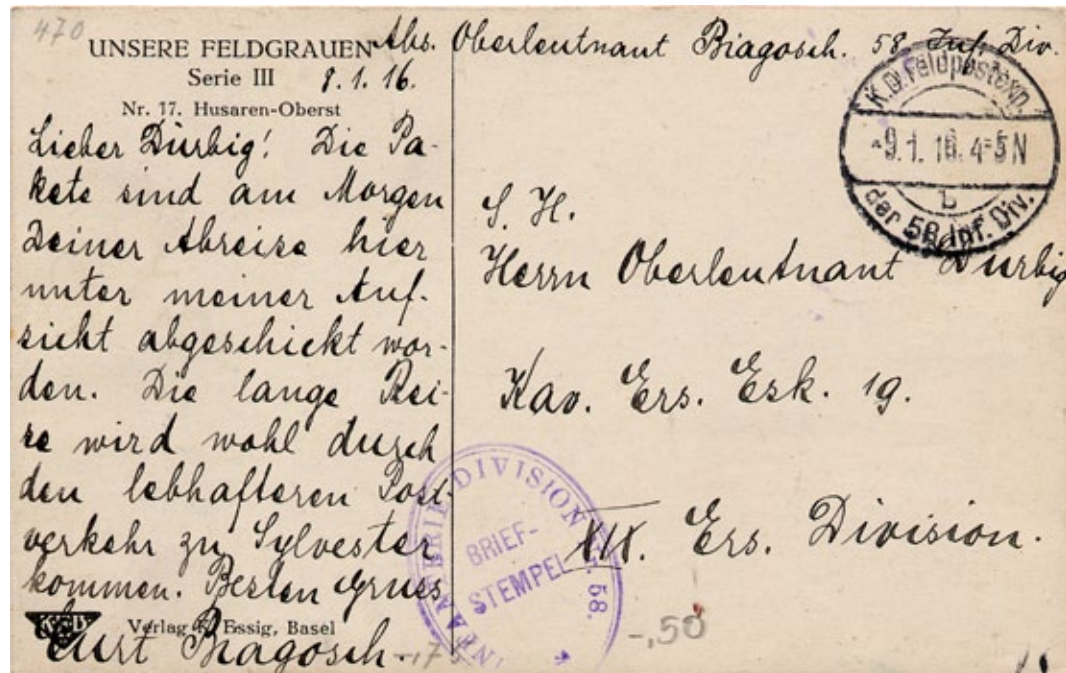 470
UNSERE FELDGRAUEN
Serie III 8.1.16.
Nr. 17. Husaren-Oberst
Abs. Oberleutnant Biagosch. 58. Inf. Div.
Lieber Dürbig! Die Pa-
kete sind am Morgen
Deiner Abreise hier
unter meiner Auf-
sicht abgeschickt wor-
den. Die lange Rei-
se wird wohl durch
den lebhafteren Post-
verkehr zu Sylvester
kommen. Besten Gruss
Curt Biagosch.
Verlag K. Essig, Basel
-,75
K.D. Feldpostexp.
-9.1.16. 4-5N
b
der 58. Inf. Div.
S. H.
Herrn Oberleutnant Dürbig
Kav. Ers. Esk. 19.
XIX. Ers. Division.
INFANTERIE DIVISION Nr. 58.
BRIEF-
STEMPEL
-,50